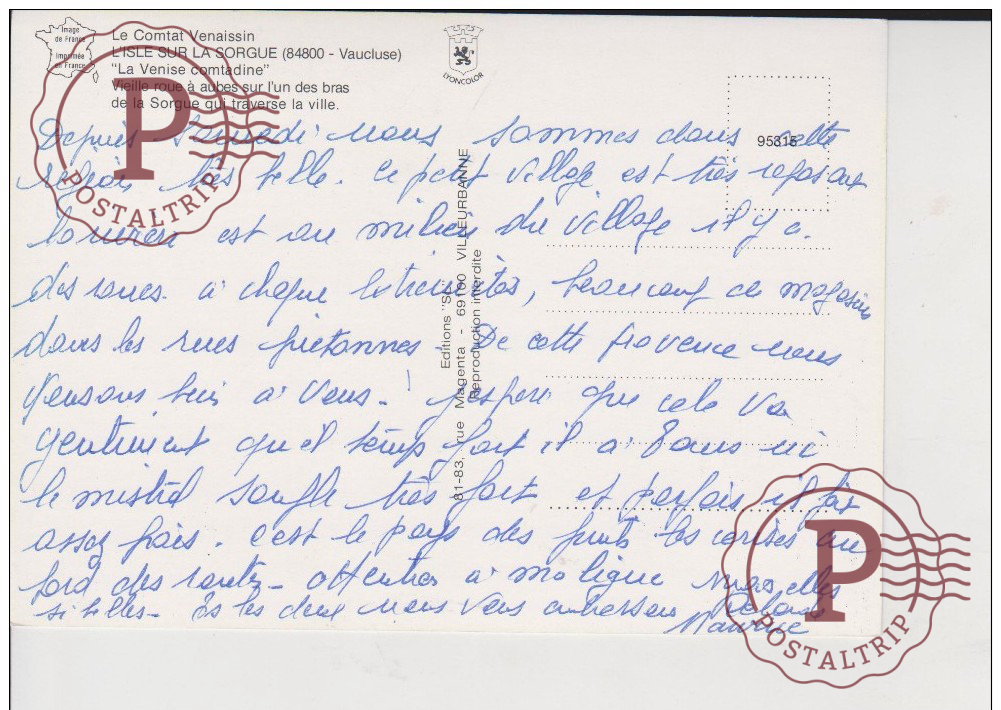 Image
de France
Imprimée
en France
Le Comtat Venaissin
L'ISLE SUR LA SORGUE (84800 - Vaucluse)
"La Venise comtadine"
Vieille roue à aubes sur l'un des bras
de la Sorgue qui traverse la ville.
LYONCOLOR
95315
Editions "SL"
81-83, rue Magenta - 69100 VILLEURBANNE
Reproduction interdite
Depuis Samedi nous sommes dans cette
région très belle. Ce petit village est très reposant
la rivière est au milieu du village il y a
des roues à chaque beaucoup de magasins
dans les rues piétonnes - De cette Provence nous
pensons bien à vous - ! J'espère que cela va
gentiment quel temps fait il à ici
le mistral souffle très fort et parfois il fait
assez frais. C'est le pays des fruits les cerises au
bord des routes - attention à ma ligne mais elles
si belles - tous les deux nous vous embrassons
Maurice
P
POSTALTRIP
P
POSTALTRIP